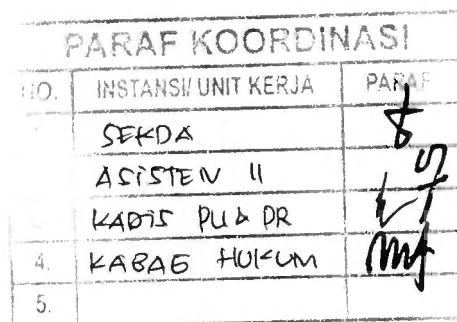 PARAF KOORDINASI
NO. INSTANSI/ UNIT KERJA PARAF
SEKDA
ASISTEN II
KADIS PU & PR
4. KABAG HUKUM
5.